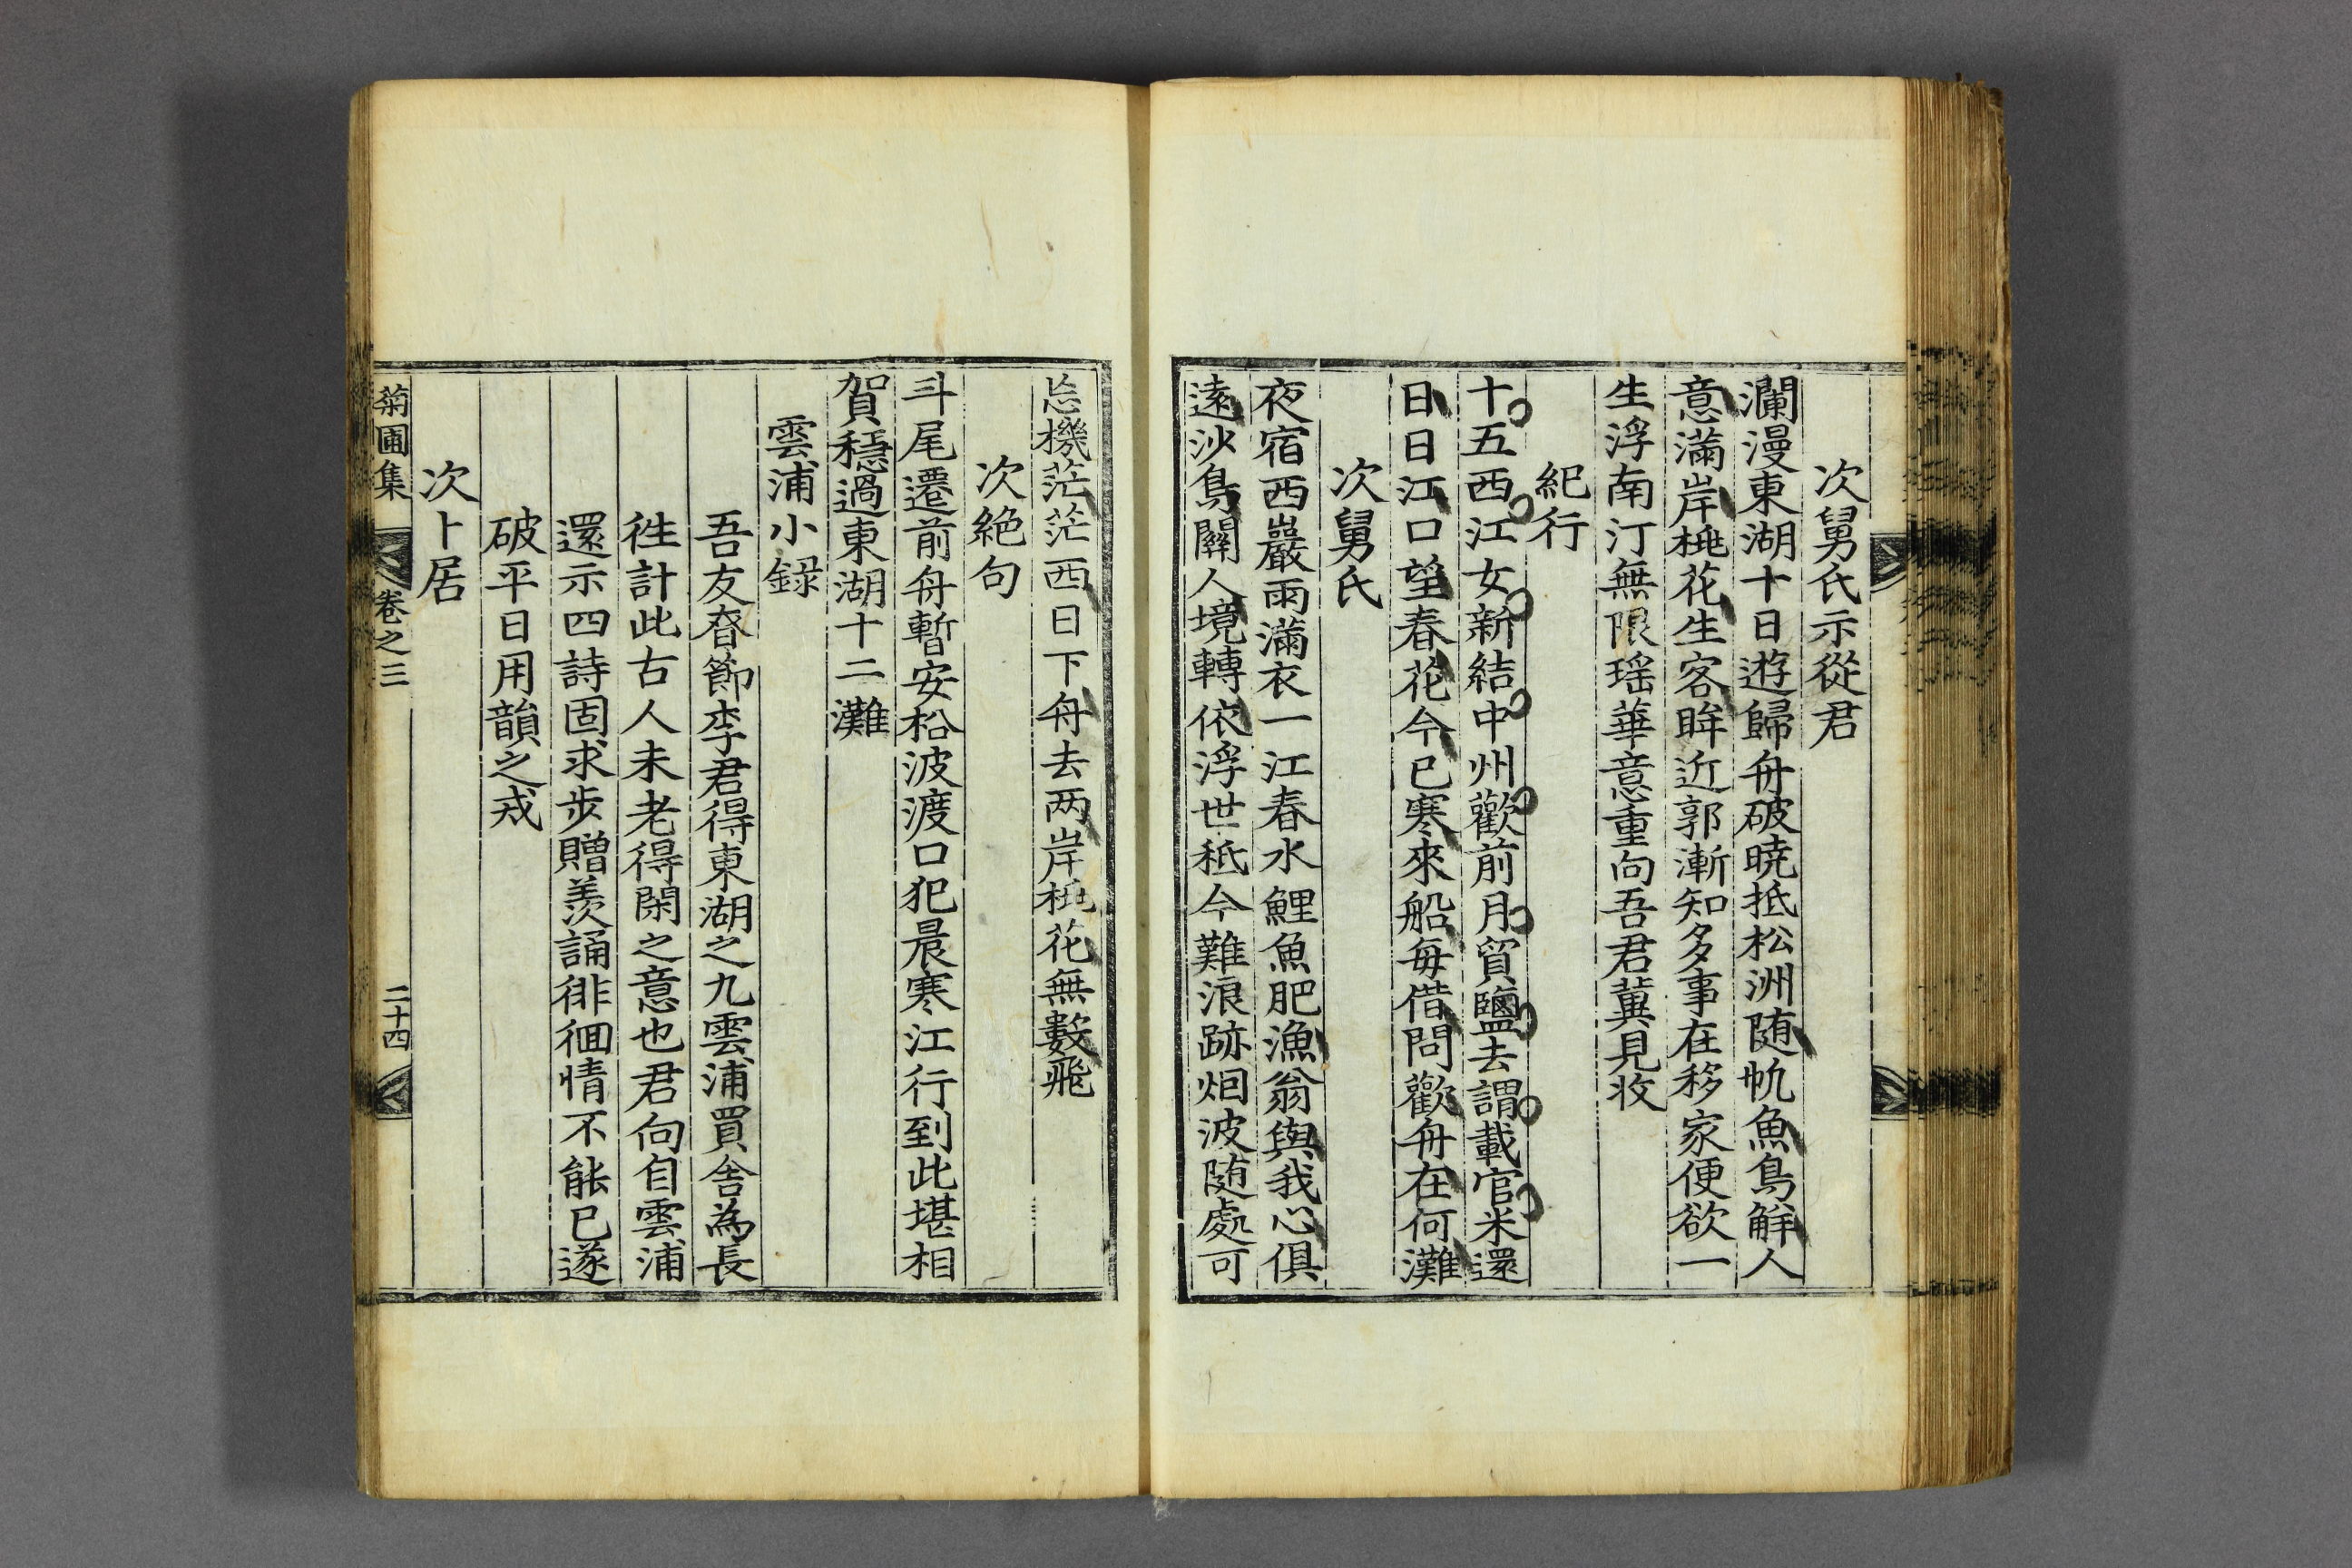 次舅氏示從君
瀾漫東湖十日遊歸舟破曉抵松洲随帆魚鳥觧人
意滿岸桃花生客眸近郭漸知多事在移家便欲一
生浮南汀無限瑶華意重向吾君冀見收
紀行
十五西江女新結中州歡前月貿鹽去謂載官米還
日日江口望春花今已寒來船每借問歡舟在何灘
次舅氏
夜宿西巖雨滿衣一江春水鯉魚肥漁翁與我心俱
遠沙鳥關人境轉依浮世秪今難浪跡烟波随處可
忘機茫茫西日下舟去两岸桃花無數飛
次絶句
斗尾遷前舟暫安松波渡口犯晨寒江行到此堪相
賀穩過東湖十二灘
雲浦小録
吾友舂節李君得東湖之九雲浦買舍為長
徃計此古人未老得閑之意也君向自雲浦
還示四詩固求步贈羨誦徘徊情不能已遂
破平日用韻之戒
次卜居
菊圃集 卷之三 二十四